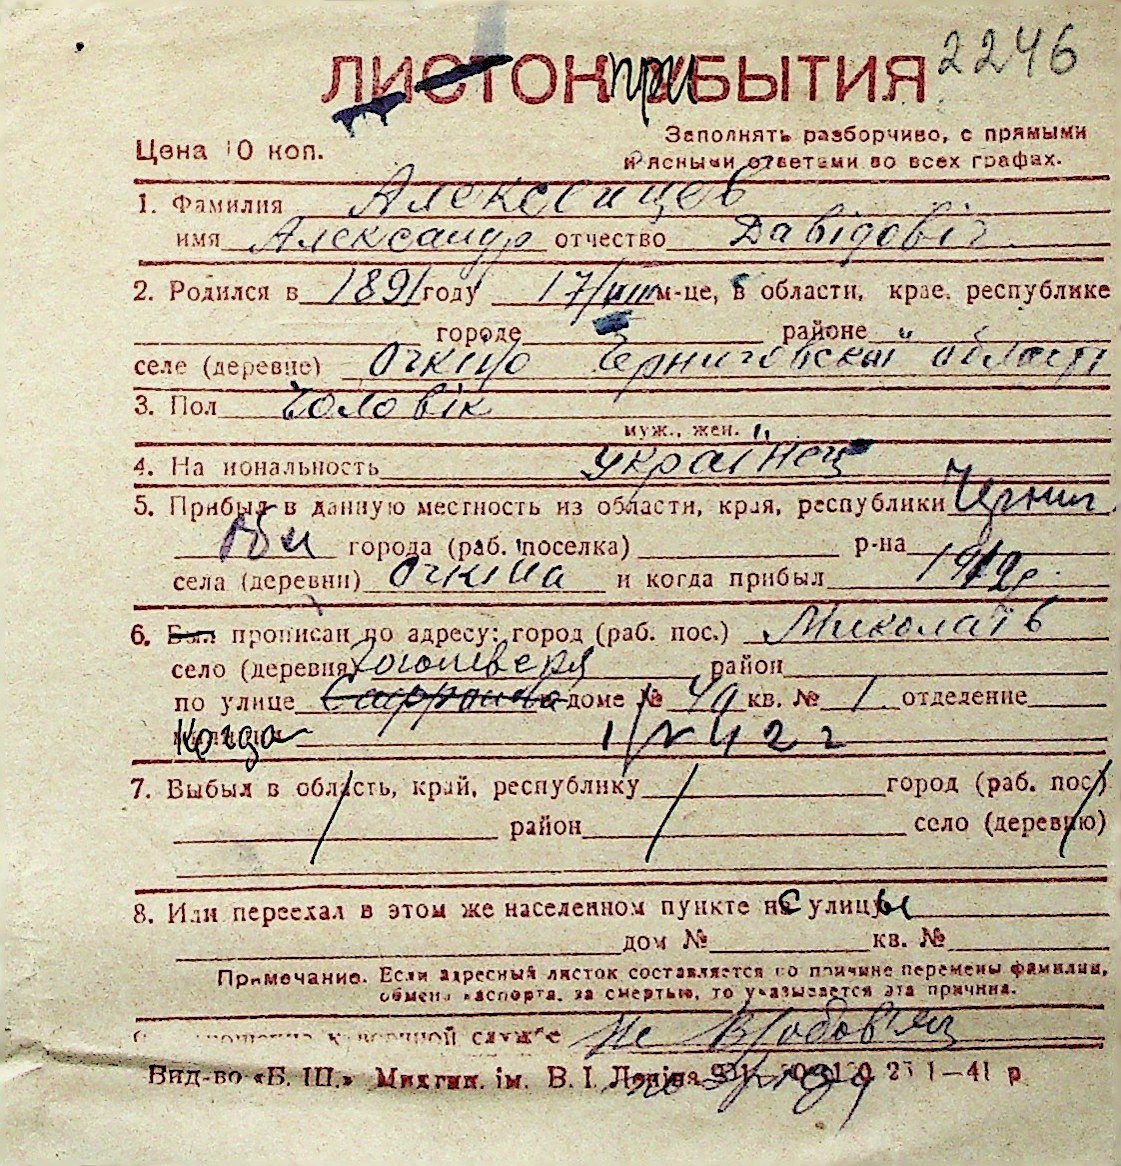 2246
ЛИСТОК приБЫТИЯ
Заполнять разборчиво, с прямыми
Цена 10 коп.
и ясными ответами во всех графах.
1. Фамилия Алексеицев
имя Александр отчество Давідовіч
2. Родился в 1891 году 17/VIII м-це, в области, крае, республике
городе районе
селе (деревне) Очкіно Черниговской області
3. Пол Чоловік
муж., жен.
4. Национальность українец
5. Прибыл в данную местность из области, края, республики Черниг.
обл города (раб. поселка) р-на
села (деревни) Очкіна и когда прибыл 1912р.
6. Был прописан по адресу: город (раб. пос.) Миколаїв
село (деревня) район
по улице доме № 49 кв. № 1 отделение
Когда 1/V 42 г
7. Выбыл в область, край, республику город (раб. пос.)
район село (деревню)
8. Или переехал в этом же населенном пункте с улицы
дом № кв. №
Примечание. Если адресный листок составляется по причине перемены фамилии,
обмена паспорта, за смертью, то указывается эта причина.
Отношение к военной службе Не
Вид-во «Б. Ш.» Миктип. ім. В. І. Леніна 1-41 р